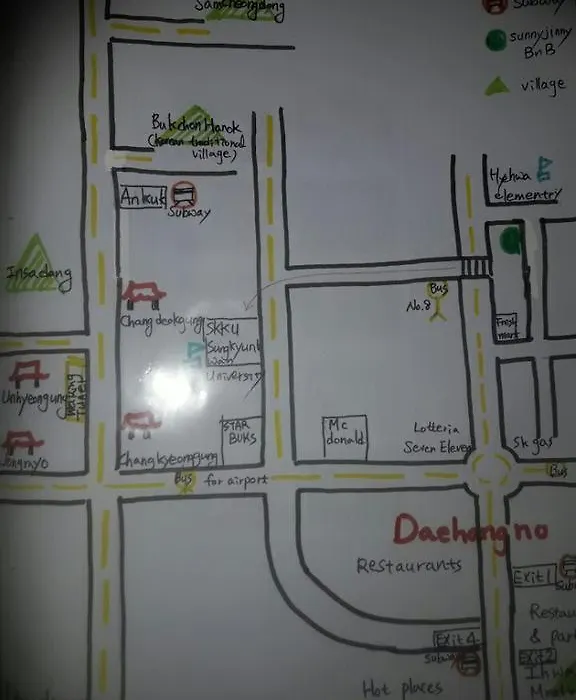 Samcheongdong
Subway
sunnyjinny
BnB
village
Bukchon Hanok
(korean traditional
village)
Ankuk
Subway
Hyehwa
elementry
Insadang
Changdeokgung
SKKU
Sungkyunk
wan
University
Bus
No.8
Fresh
mart
Unhyeongung
Jongmyo
Changkyeonggung
STAR
BUKS
Mc
donald
Lotteria
Seven Eleven
Sk gas
Bus
for airport
Bus
Daehangno
Restaurants
Exit1
Sub
Restau
& par
Exit 4
Subway
Exit2
Ihwa
Hot places